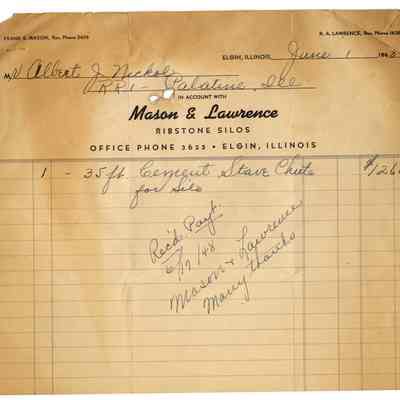 FRANK G. MASON, Res. Phone 5608
R. A. LAWRENCE, Res. Phone
ELGIN, ILLINOIS, June 1 19
M Albert J. Nickol
RR1 - Palatine, Ill
IN ACCOUNT WITH
Mason & Lawrence
RIBSTONE SILOS
OFFICE PHONE 3623 • ELGIN, ILLINOIS
1 - 35 ft Cement Stave Chute $126
for Silo
Rec'd. Payt.
6/17/48
Mason & Lawrence
Many thanks